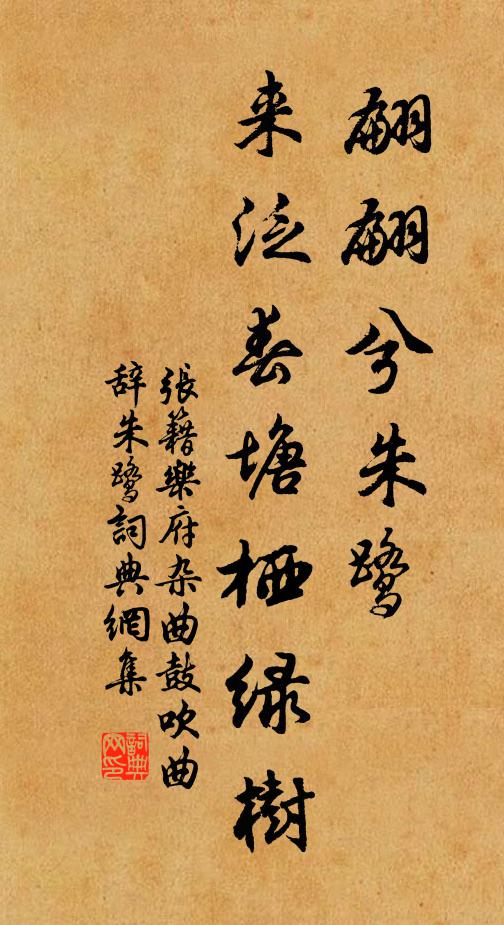 翩翩兮朱鹭
来泛春塘栖绿樹
張籍樂府杂曲鼓吹曲
辞朱鹭詞典網集
詞典
网印